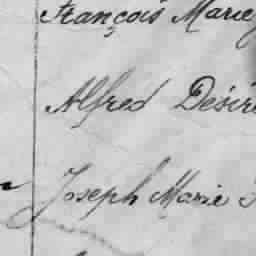 François Marie
Alfred Désiré
Joseph Marie